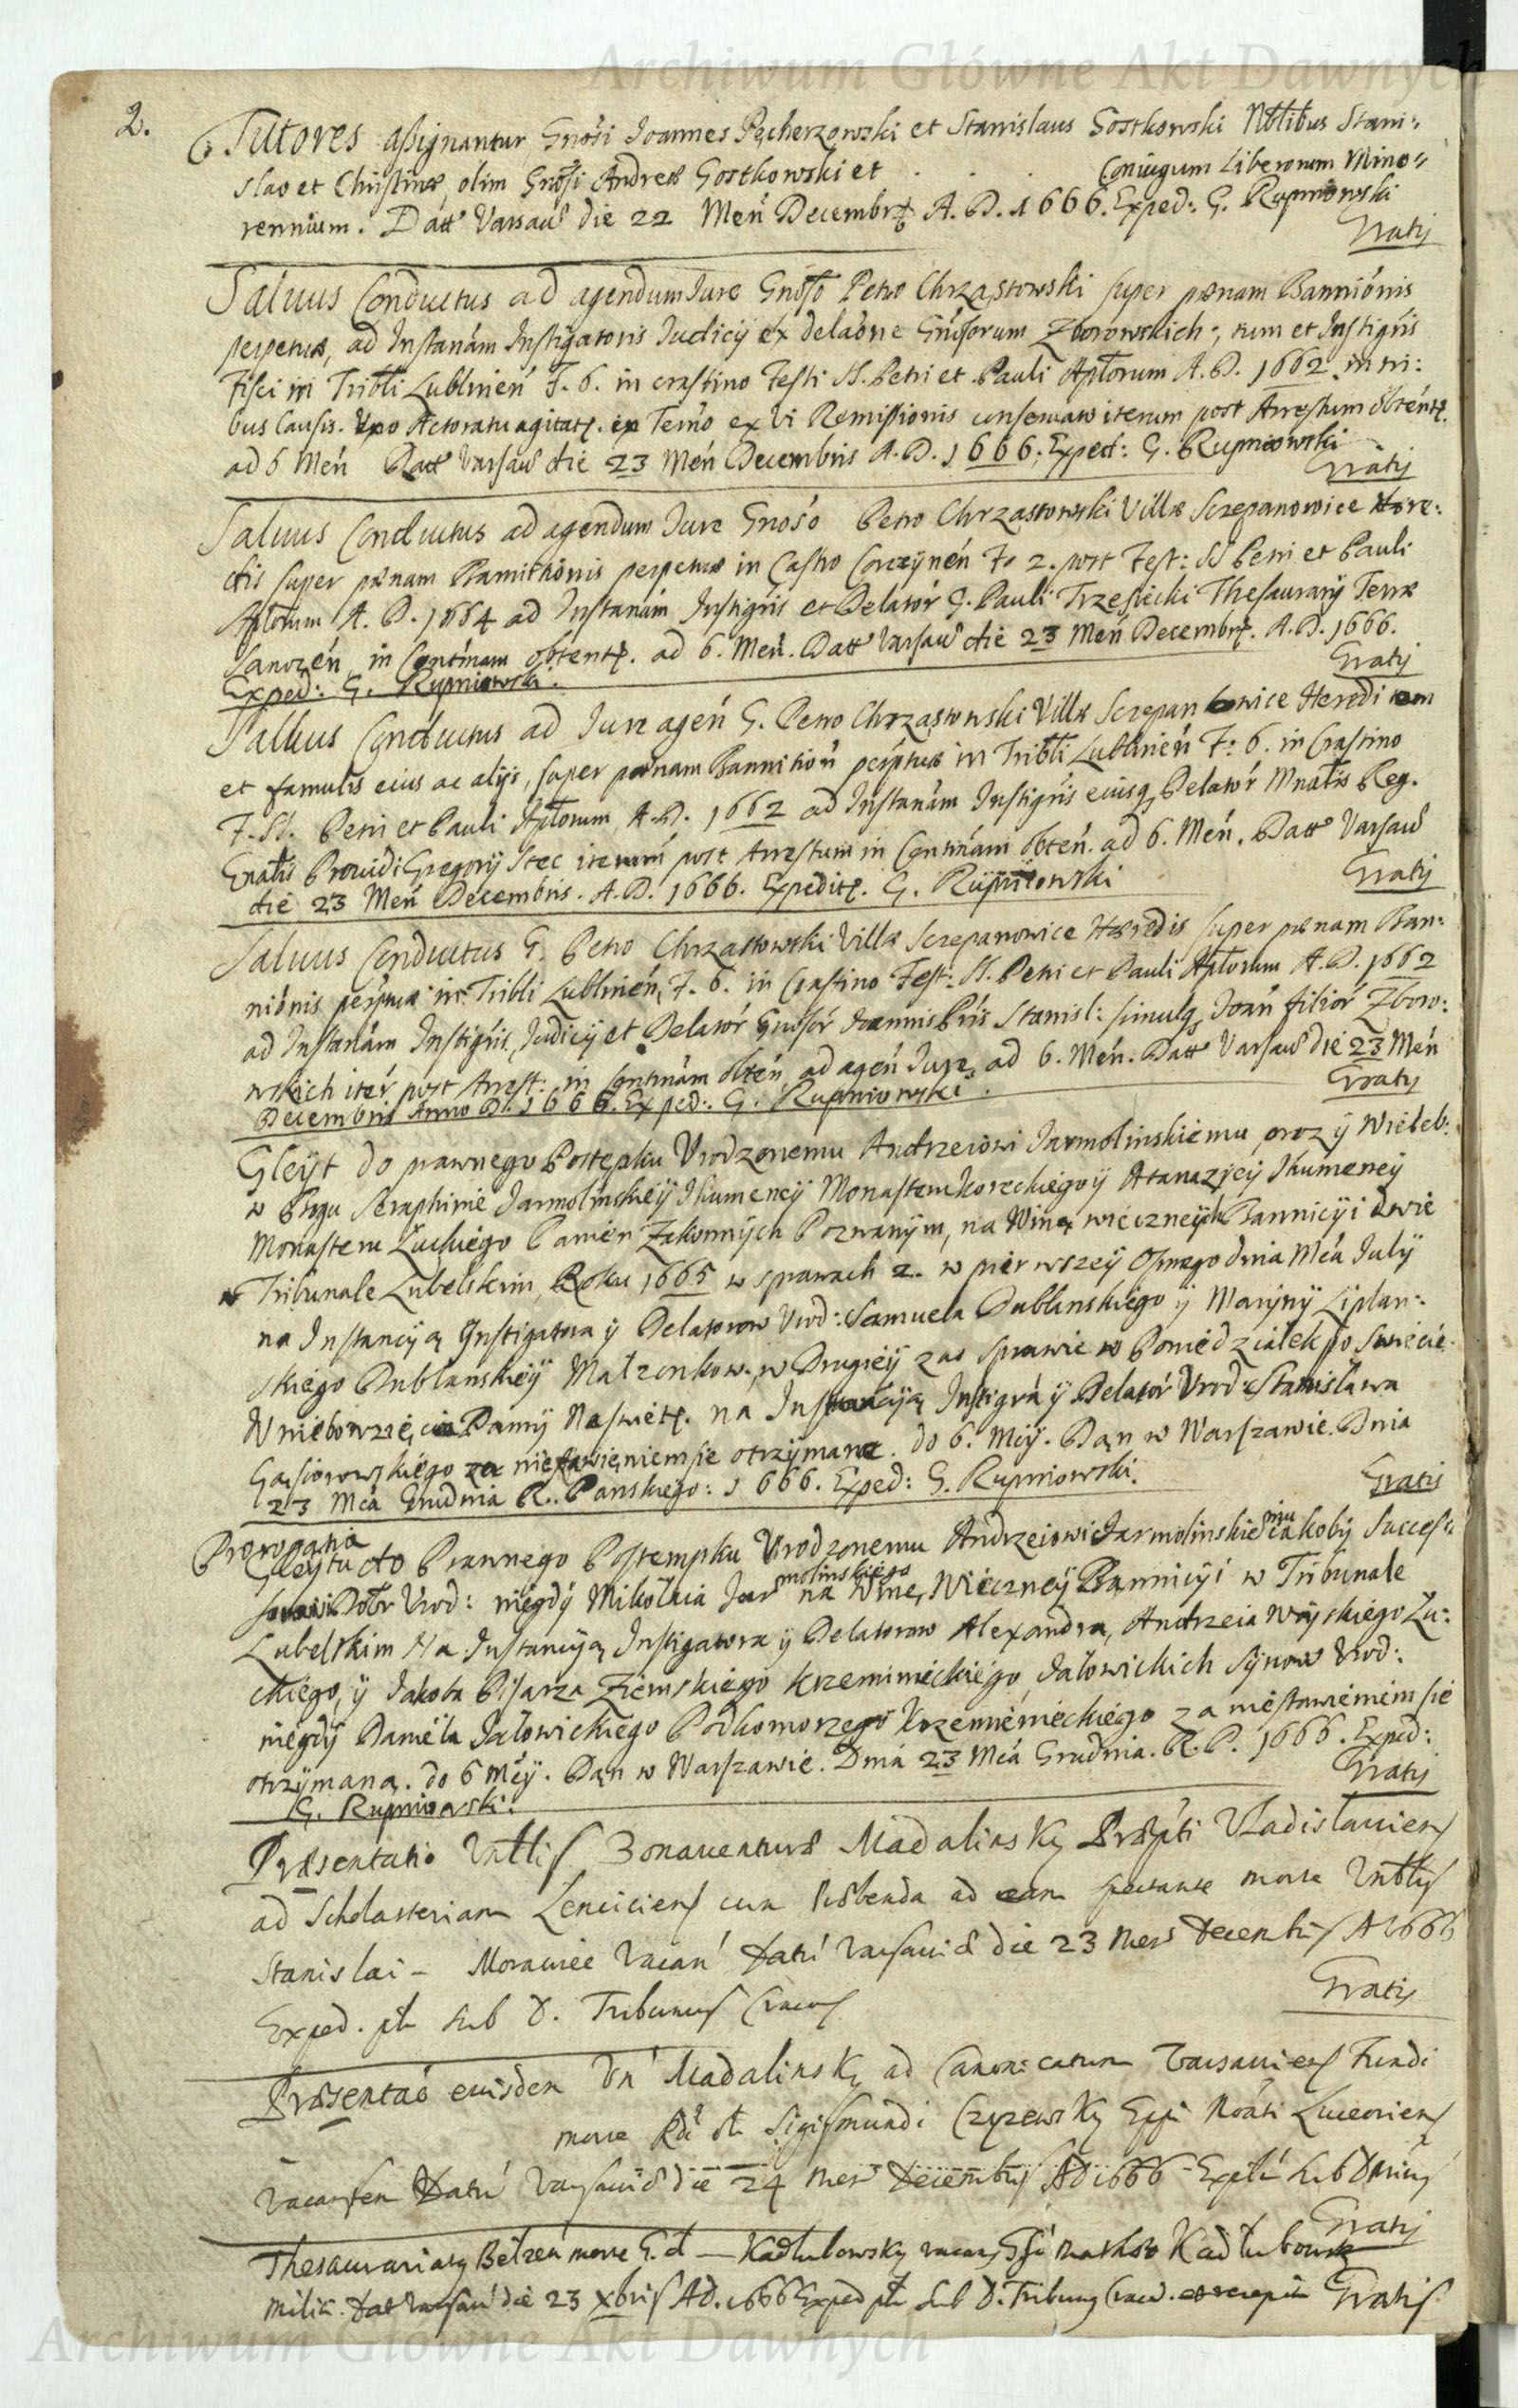 Archiwum Główne Akt Dawnych
2.
Tutores assignantur Gnosi Joannes Pęcherzowski et Stanislaus Gostkowski Nbtibus Stani:
slao et Christinæ, olim Gnosi Andreæ Gostkowski et . . . Coniugum Liberorum Mino=
rennium. Datt Varsav die 22 Men Decembr A. D. 1666. Exped: G. Rupniowski
Gratis
Saluus Conductus ad agendum Jure Gnoso Petro Chrząstowski super pænam Bannionis
perpetuæ, ad Instanam Instigatoris Judicij ex delaone Gnosorum Zborowskich, tum et Instigris
Fisci in Tribli Lublinen F. 6. in crastino Festi SS. Petri et Pauli Aptorum A. D. 1662 in tri:
bus Causis. Actoratu agitat. ex Termo ex vi Remissionis conservato iterum post Arrestum obtent.
ad 6 Men Datt Varsav die 23 Men Decembris A. D. 1666. Exped: G. Rupniowski
Gratis
Saluus Conductus ad agendum Jure Gnoso Petro Chrząstowski Villæ Sczepanowice Hære:
dis super pænam Bannithionis perpetuæ in Castro Corczynen F. 2. post Fest: SS Petri et Pauli
Aptorum A. D. 1664 ad Instanam Instigris et Delator G. Pauli Trzesiecki Thesaurarij Terræ
Sanocen, in Contnam obtent. ad 6. Men. Datt Varsav die 23 Men Decembr. A. D. 1666.
Gratis
Exped: G. Rupniowski.
Saluus Conductus ad Jure agen G. Petro Chrząstowski Villæ Sczepanowice Heredi
et famulis eius ac alijs, super pænam Bannition perptuæ in Tribli Lublinen F. 6. in Crastino
F. SS. Petri et Pauli Aptorum A. D. 1662 ad Instanam Instigris eiusq Delator Mnatis Reg.
Gnatis Prouidi Gregorij Stec iterum post Arrestum in Contnam obten. ad 6. Men. Datt Varsav
Gratis
die 23 Men Decembris. A. D. 1666. Expedit. G. Rupniowski
Saluus Conductus G. Petro Chrząstowski Villæ Sczepanowice Hæredis super pænam Ban:
nionis perptuæ in Tribli Lublinen, F. 6. in Crastino Fest: SS. Petri et Pauli Aptorum A. D. 1662
ad Instanam Instigris, Judicij et Delator Gnosor Joannis Pris Stanisl: simulq Joan filior Zboro:
wskich iter post Arrest: in Contnam obten ad agen Jure, ad 6. Men. Datt Varsav die 23 Men
Gratis
Decembris Anno D. 1666. Exped: G. Rupniowski.
Gleÿt do prawnego Postępku Vrodzonemu Andrzeiowi Jarmolinskiemu, oraz ÿ Wieleb:
w Bogu Seraphinie Jarmolinskieÿ Jhumeneÿ Monastera Koreckiego ÿ Atanazÿeÿ Jhumeneÿ
Monasteru Łuckiego Panien Zakonnÿch Pozwanÿm, na Winę wieczneÿ Bannicÿi dwie
w Tribunale Lubelskim, Roku 1665 w sprawach 2. w pierwszeÿ Osmego dnia Mca Julÿ
na Instancÿą Instigatora ÿ Delatorow Vrod: Samuela Dublanskiego ÿ Marÿnÿ Liplan:
skiego Dublanskieÿ Małzonkow, w Drugieÿ zas sprawie w Poniedziałek po Swiecie
Wniebowzięcia Pannÿ Naswięt. na Instancÿą Instigra ÿ Delator Vrod: Stanisława
Gąsiorowskiego za niestawieniem sie otrzÿmane. do 6. Mcÿ. Dan w Warszawie. Dnia
23 Mca Grudnia R. Panskiego: 1666. Exped: G. Rupniowski.
Gratis
Prorogatia
Gleÿtu do Prawnego Postempku Vrodzonemu Andrzeiowi Jarmolinskiemu iakobÿ Success:
Dobr Vrod: niegdÿ Mikołaia Jarmolinskiego na Winę, Wieczneÿ Bannicÿi w Tribunale
Lubelskim Na Instancÿą Instigatora ÿ Delatorow Alexandra, Andrzeia Woÿskiego Łu:
ckiego, ÿ Jakoba Pisarza Ziemskiego Krzemienieckiego Jałowickich Sÿnow Vrod:
niegdÿ Daniela Jałowickiego Podkomorzego Krzemienieckiego za niestawieniem sie
otrzÿmaną. do 6 Mcÿ. Dan w Warszawie. Dnia 23 Mca Grudnia. R. P. 1666. Exped:
Gratis
G. Rupniowski.
Præsentatio Bonauenturæ Madalinsky Præpti Vladislauiens
ad Scholasteriam Lenciciens cum Præbenda ad eam spectante morte
Stanislai – Morawiec vacan Datt Varsauiæ die 23 Mens Decembris A 1666
Gratis
Exped. sub D. Tribunus Cracov
Præsentao eiusdem Dn Madalinsky ad Canonicatum Varsauiens Fundi
morte Sigismundi Czyzewsky Eppi Noati Luceoriens
vacantem Datt Varsauiæ die 24 Mens Decembris AD 1666 Exped sub
Gratis
Thesaurariatq Belzen morte G. d — Kadlubowsky vacan Kadlubowsky
Milit. Dat Varsav die 23 Xbris AD. 1666 Exped sub D. Tribung Cracov. Gratis
Archiwum Główne Akt Dawnych